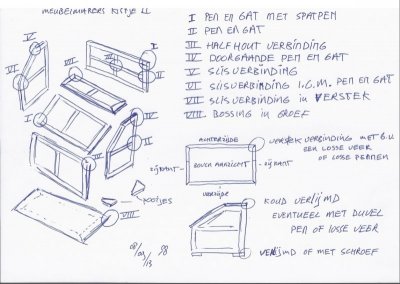 MEUBELMAKERS KISTJE II
I PEN EN GAT MET SPATPEN
II PEN EN GAT
III HALFHOUT VERBINDING
IV DOORGAANDE PEN EN GAT
V SLISVERBINDING
VI SLISVERBINDING I.C.M. PEN EN GAT
VII SLISVERBINDING in VERSTEK
VIII BOSSING in GROEF
I
II
III
IV
V
VI
VII
VIII
POOTJES
ACHTERZIJDE
ZIJKANT
BOVEN AANZICHT
ZIJKANT
VOORZIJDE
VERSTEK VERBINDING MET B.V.
EEN LOSSE VEER
OF LOSSE PENNEN
KOUD VERLIJMD
EVENTUEEL MET DUVEL
PEN OF LOSSE VEER
VERLIJMD OF MET SCHROEF
08/03/13